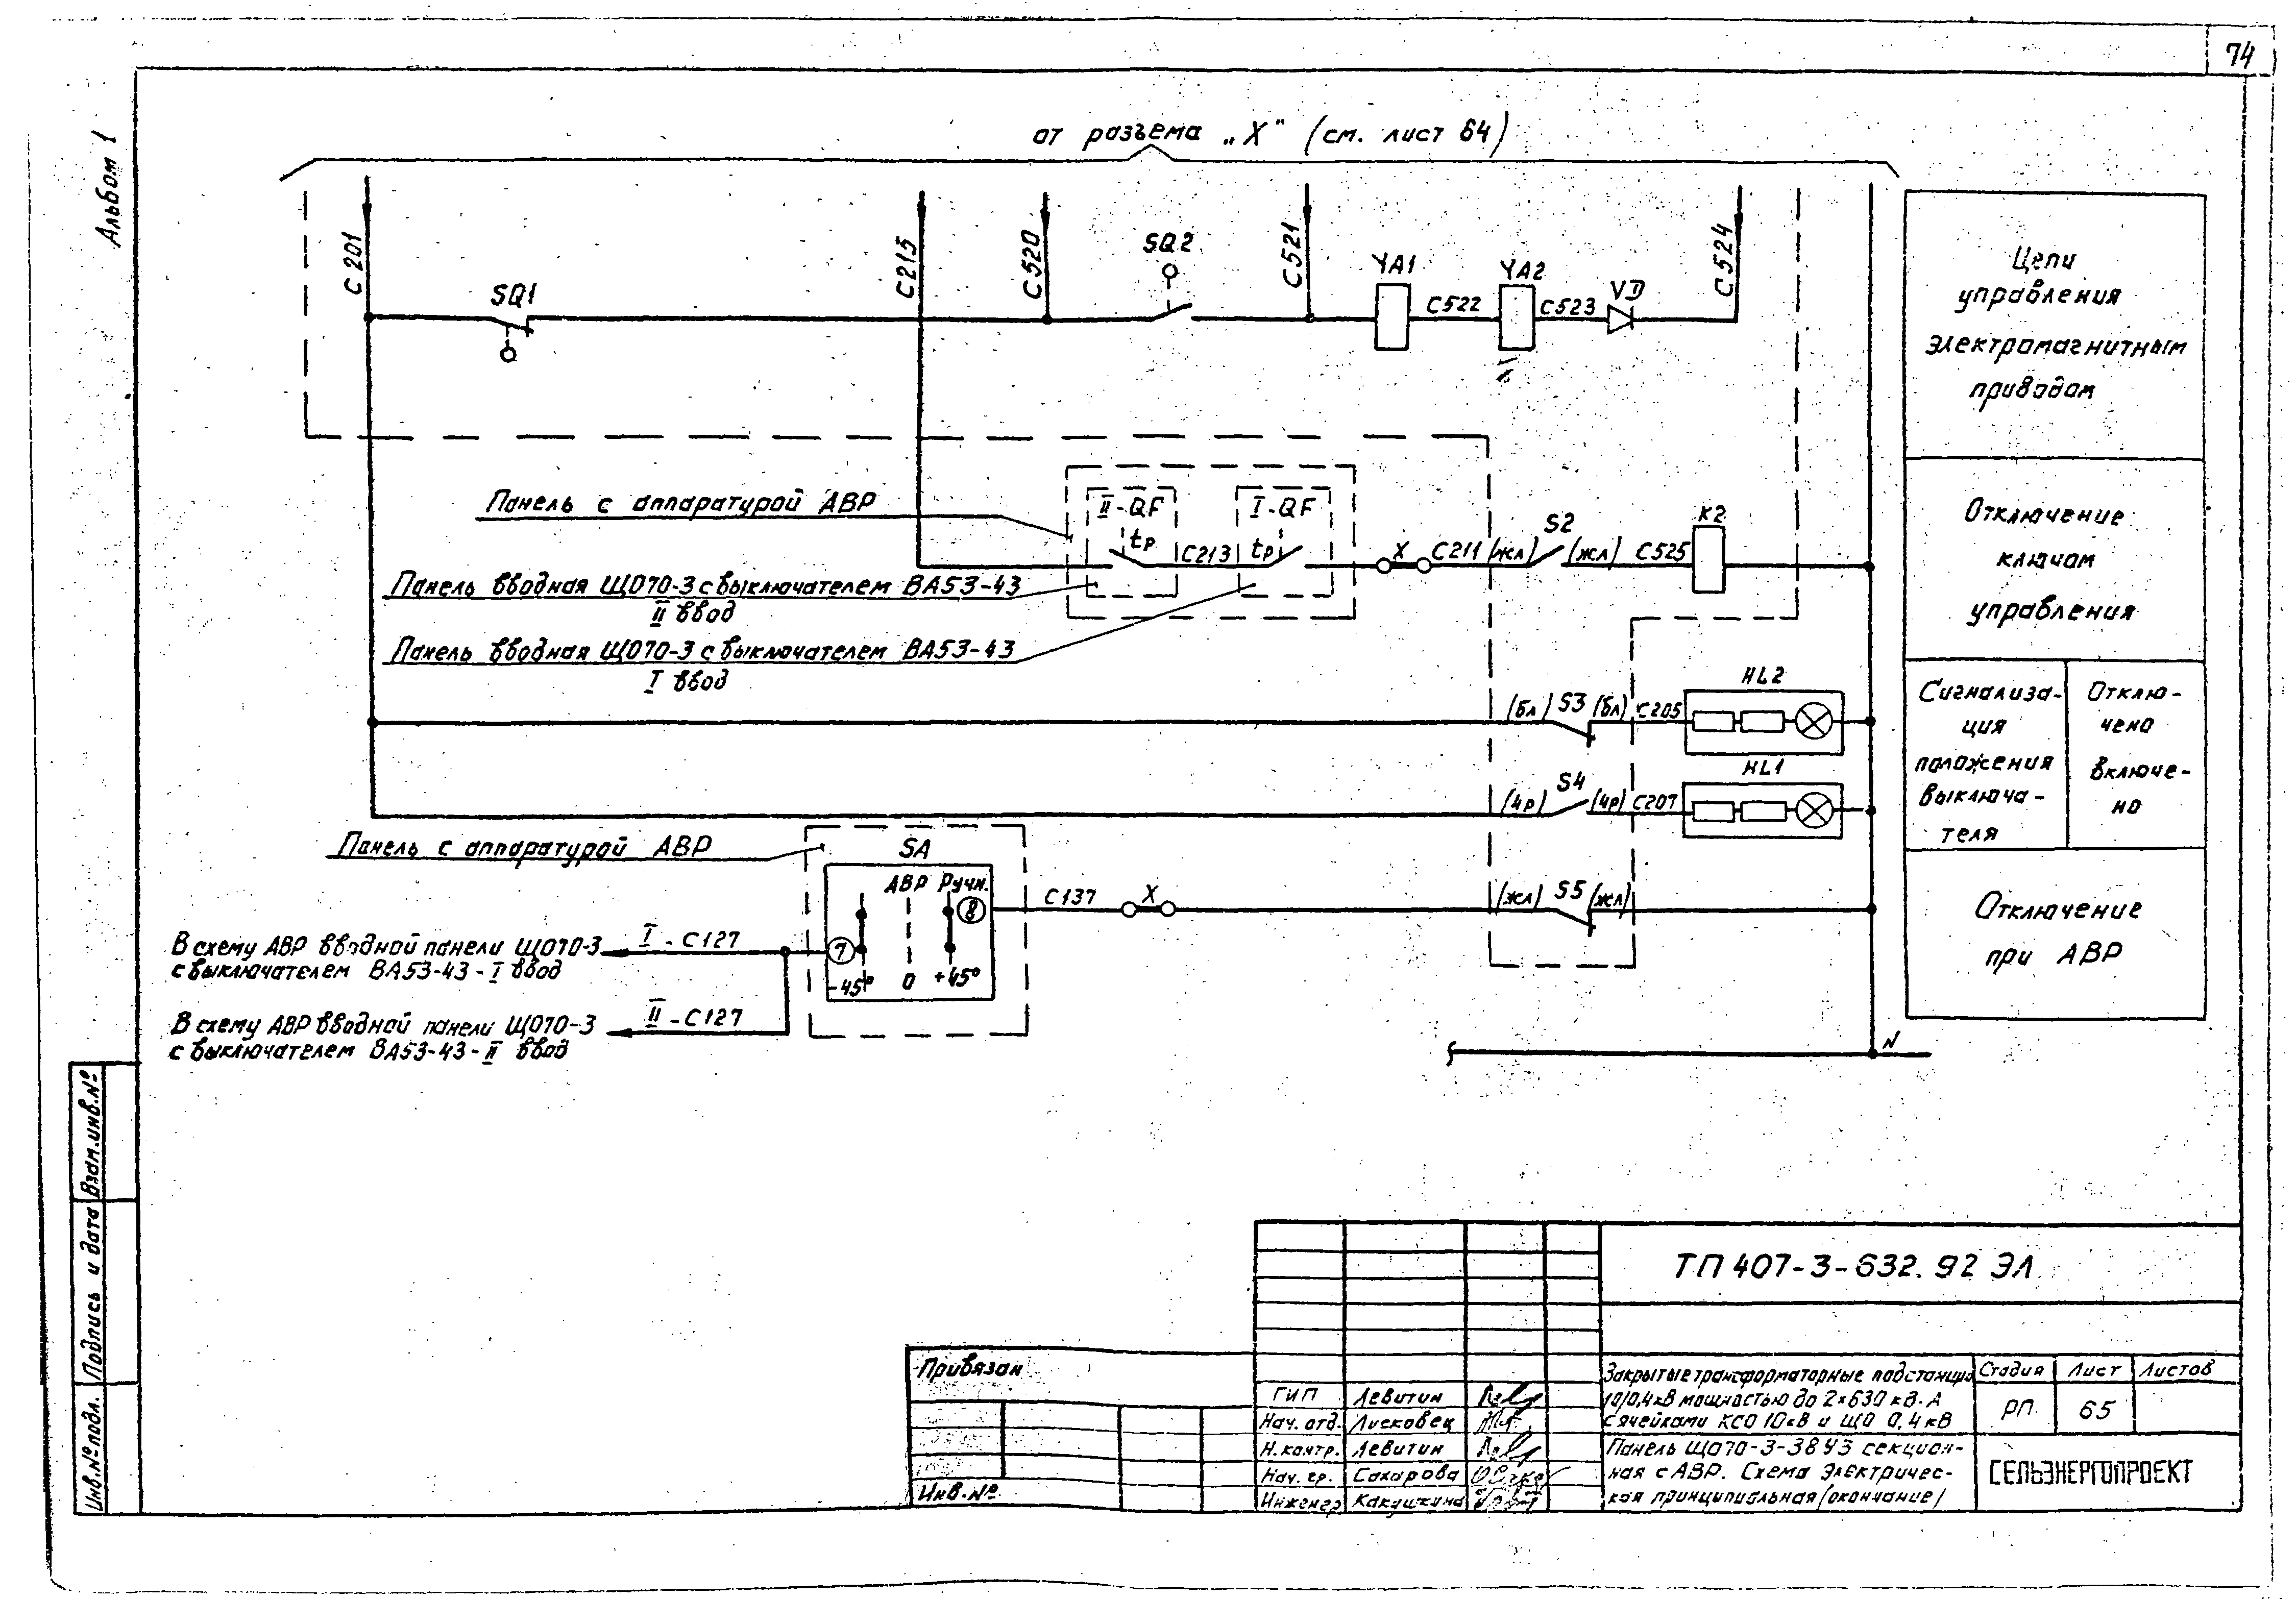 74
Альбом 1
от разъема „X" (см. лист 64)
С 201
С215
С520
SQ2
С521
С524
SQ1
YA1
С522
YA2
С523
VD
Цепи
управления
электромагнитным
приводом
Панель с аппаратурой АВР
II-QF
I-QF
tр
С213
tр
X
С211
(жл)
S2
(жл)
С525
К2
Отключение
ключом
управления
Панель вводная ЩО70-3 с выключателем ВА53-43
II ввод
Панель вводная ЩО70-3 с выключателем ВА53-43
I ввод
(бл)
S3
(бл)
С205
HL2
(чр)
S4
(чр)
С207
HL1
Сигнализа-
ция
положения
выключа-
теля
Отклю-
чено
включе-
но
Панель с аппаратурой АВР
SA
АВР Ручн.
8
7
-45° 0 +45°
С137
X
(жл)
S5
(жл)
Отключение
при АВР
В схему АВР вводной панели ЩО70-3
с выключателем ВА53-43-I ввод
I-С127
В схему АВР вводной панели ЩО70-3
с выключателем ВА53-43-II ввод
II-С127
N
Взам.инв.№
Подпись и дата
Инв.№подл.
ТП 407-3-632.92 ЭЛ
Привязан
Инв.№
ГИП Левитин
Нач. отд. Лисковец
Н.контр. Левитин
Нач. гр. Сахарова
Инженер Какушкина
Закрытые трансформаторные подстанции
10/0,4кВ мощностью до 2×630 кВ.А
с ячейками КСО 10кВ и ЩО 0,4кВ
Стадия Лист Листов
РП 65
Панель ЩО70-3-38У3 секцион-
ная с АВР. Схема электричес-
кая принципиальная (окончание)
СЕЛЬЭНЕРГОПРОЕКТ